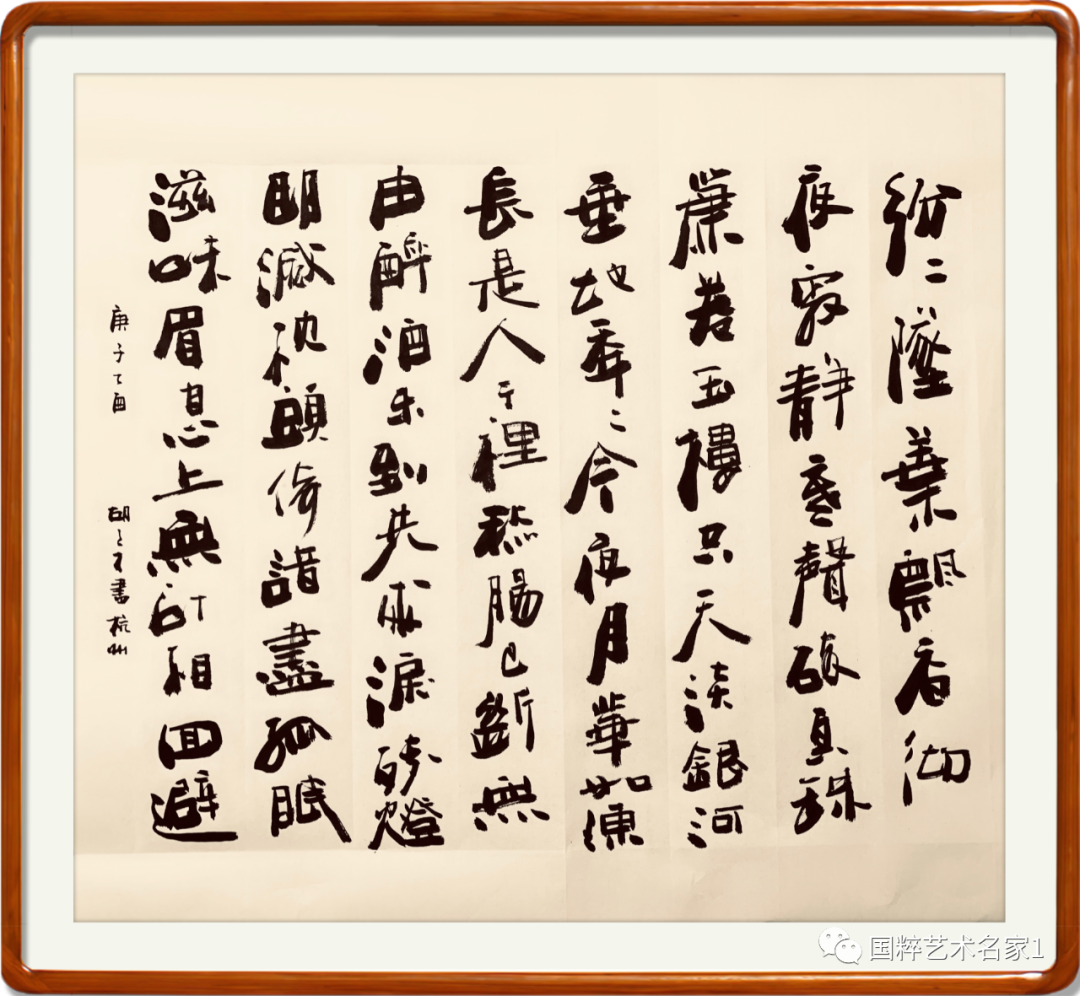 紛二墜葉飄香砌
夜寂靜寒聲碎真珠
簾卷玉樓空天淡銀河
垂地年二今夜月華如練
長是人千裡愁腸已斷無
由醉酒未到先成淚殘燈
明滅枕頭倚諳盡孤眠
滋味眉間心上無計相回避
庚子丁酉
書杭州
国粹艺术名家1